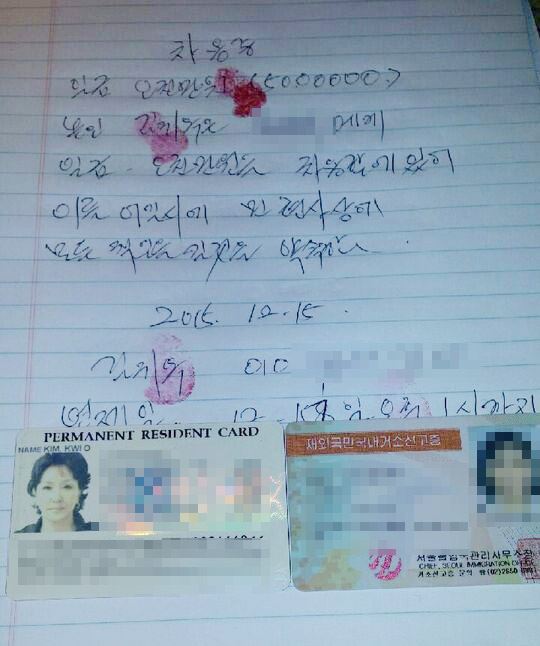 차용증
일금 오천만원 (50000000)
본인 김귀옥는 에게
일금 오천만원을 차용함에 있어
이를 어길시에 민 형사상에
모든 책임을 질것을 약속합니
2015. 12. 15.
김귀옥 010
변제일 12 일 오후 1시까지
PERMANENT RESIDENT CARD
NAME KIM, KWI O
재외국민국내거소신고증
서울출입국관리사무소장
CHIEF, SEOUL IMMIGRATION OFFICE
거소신고증 문의 ☎(02)2650